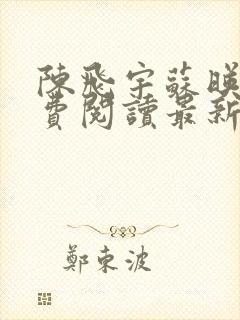 陳飛宇蘇映
費閱讀最新
鄭東波